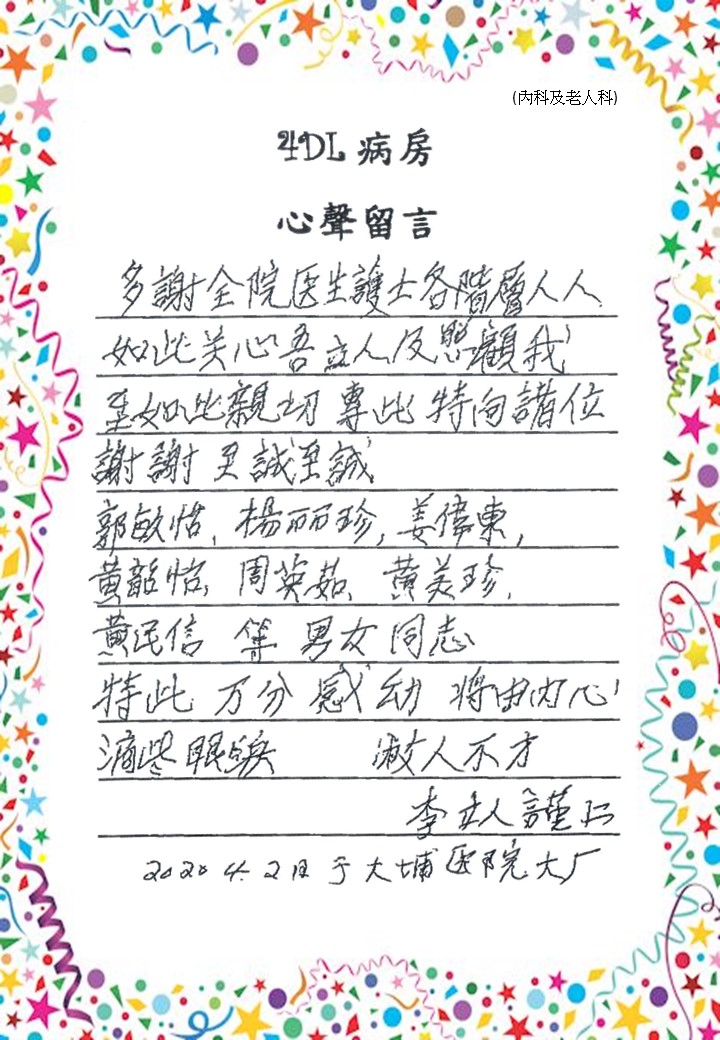 (內科及老人科)
4DL 病房
心聲留言
多謝全院医生護士各階層人人
如此关心吾立人及照顧我
至如此親切 專此 特向諸位
謝謝 至誠至誠
郭敏怡, 楊丽珍, 姜偉東,
黃龍怡, 周英茹, 黃美珍,
黃民信 等 男女同志
特此 万分 感动 將由內心
滴些眼淚 敝人不才
李立人 謹上
2020 4. 2日 于 大埔医院大厂